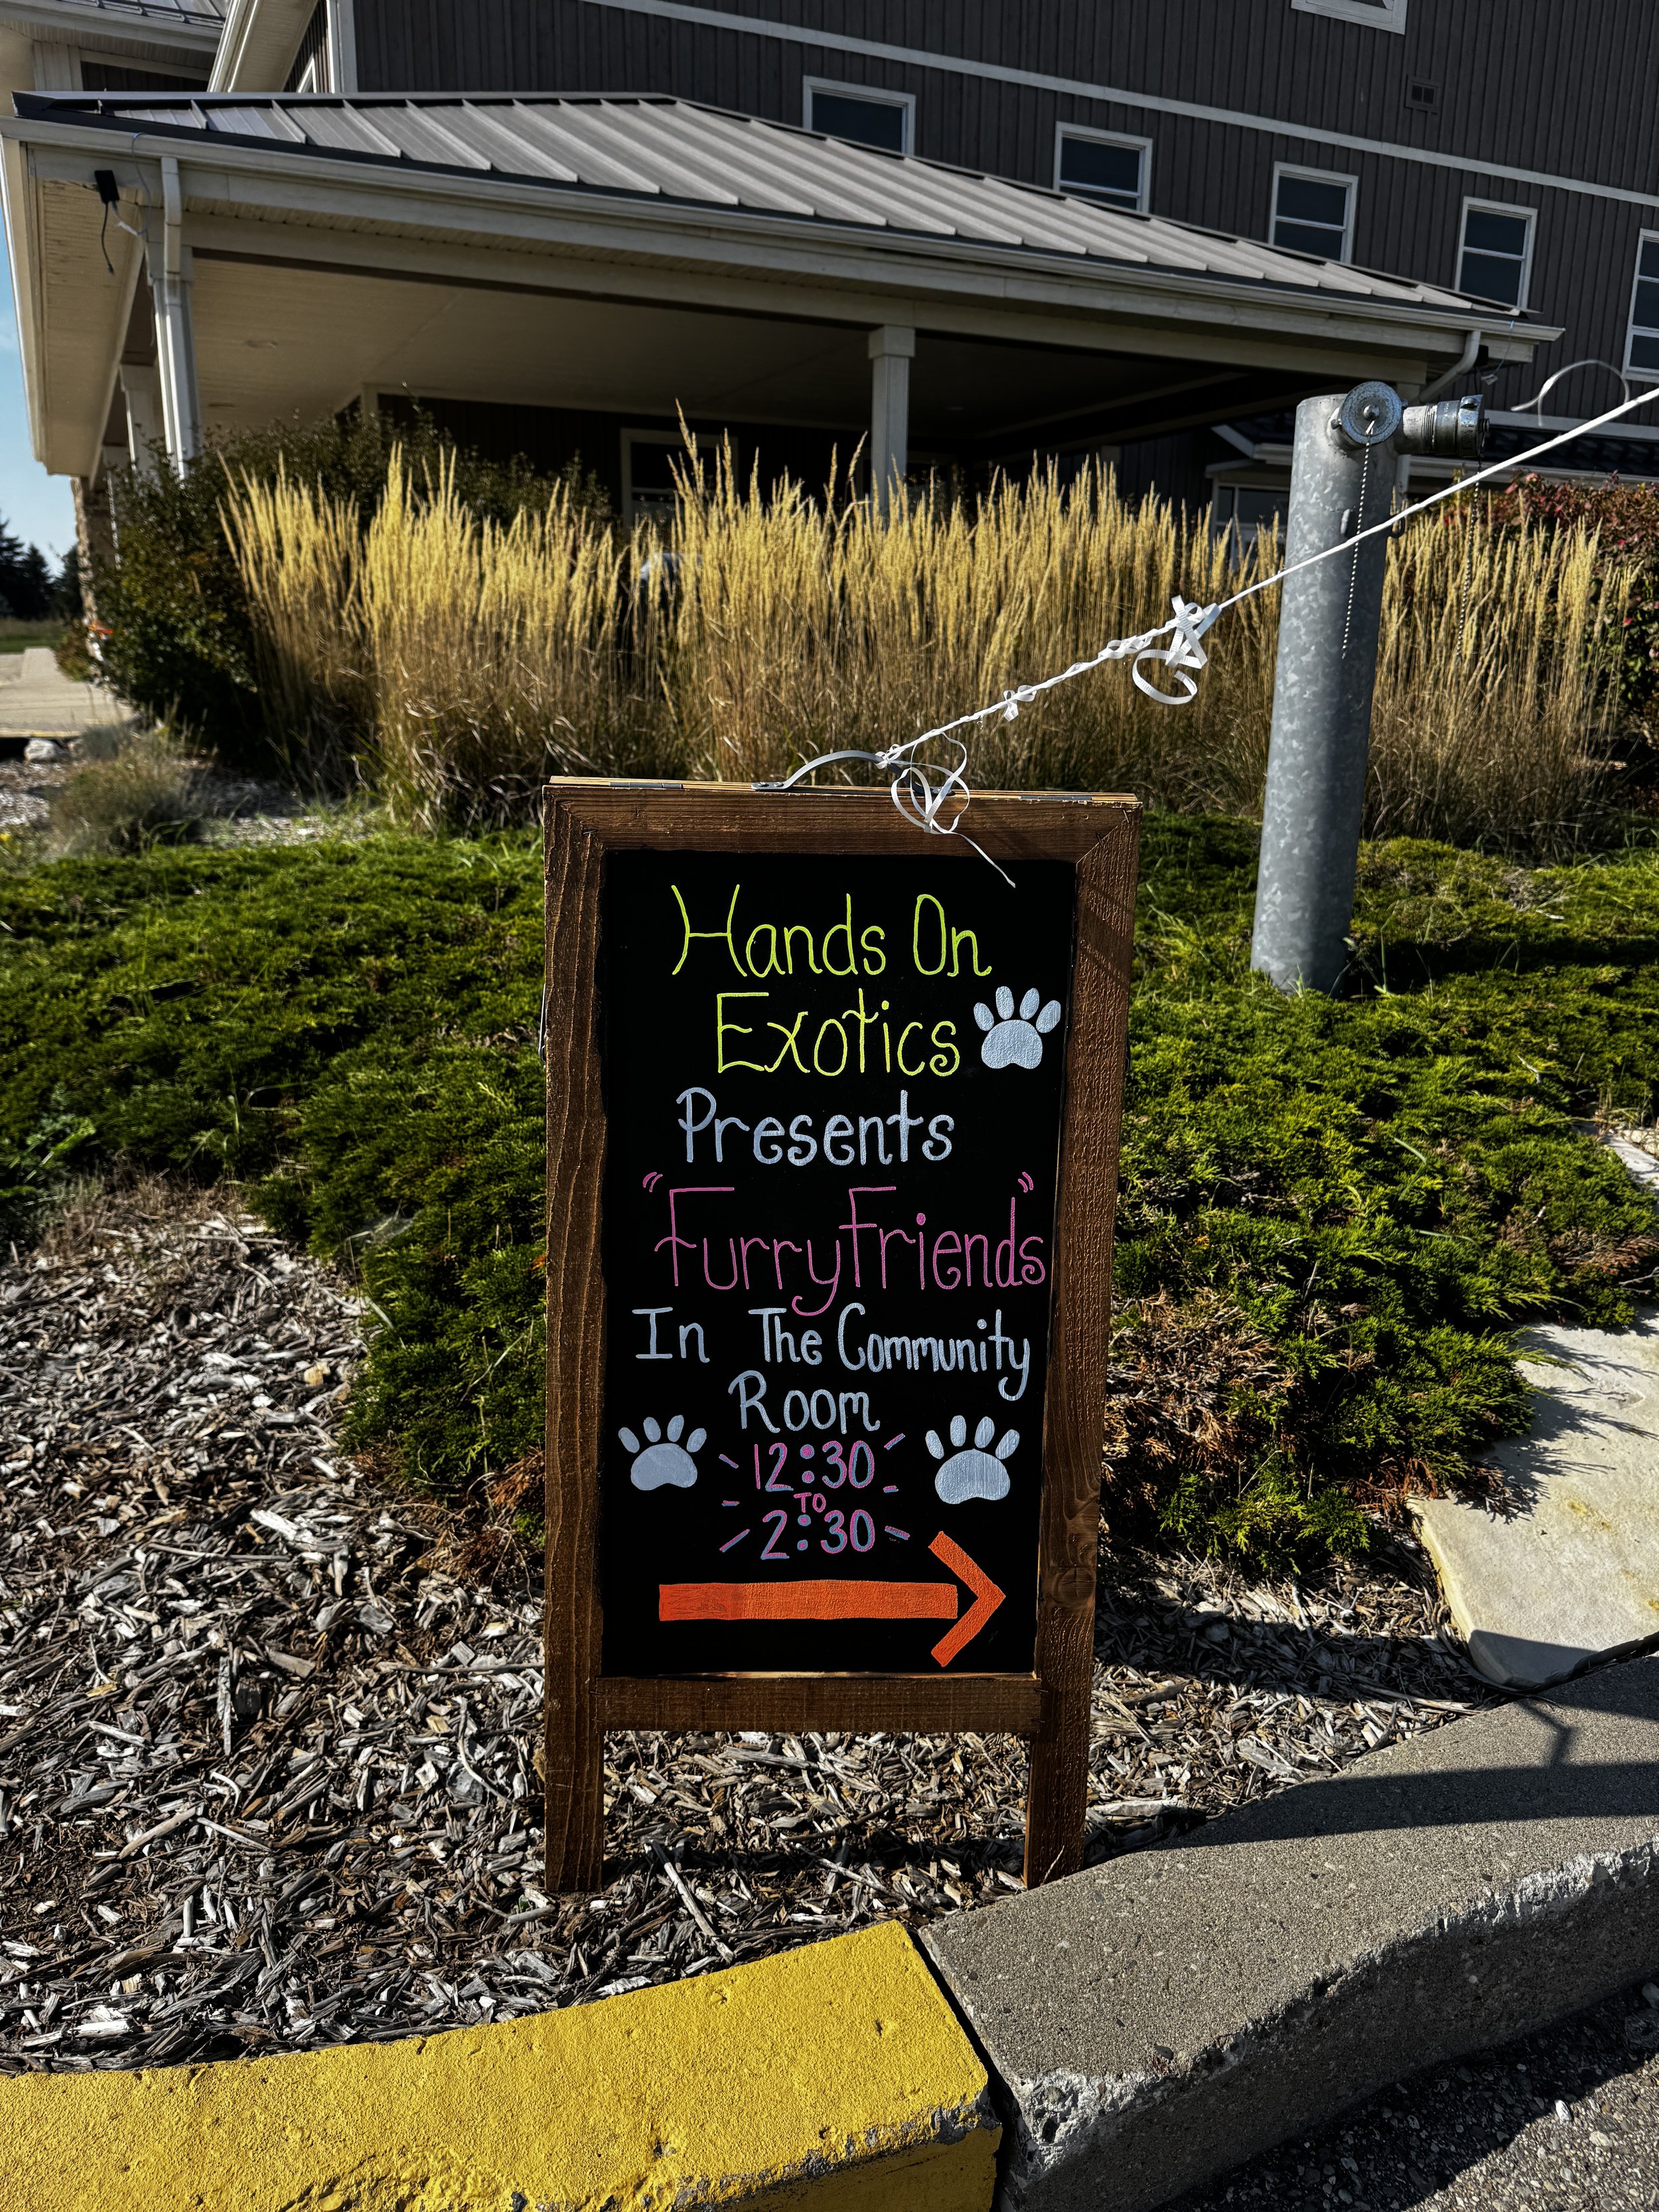 Hands On
Exotics
Presents
"FurryFriends"
In The Community
Room
12:30
TO
2:30